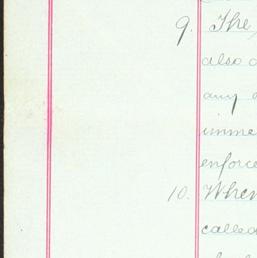 9. The
also
any
imme
enforce
10. When
called